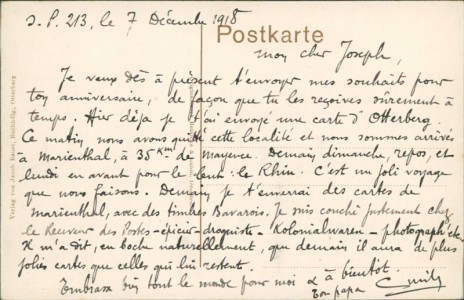 S.P. 213, le 7 Décembre 1918
Postkarte
mon cher Joseph,
Je veux dès à présent t'envoyer mes souhaits pour
ton anniversaire, de façon que tu les reçoives sûrement à
temps. Hier déja je t'ai envoyé une carte d'Otterberg.
Ce matin nous avons quitté cette localité et nous sommes arrivés
à Marienthal, à 35 Km de Mayence. Demain dimanche, repos, et
lundi en avant pour le Rhin. C'est un joli voyage
que nous faisons. Demain je t'enverrai des cartes de
marienthal, avec des timbres Bavarois. Je suis couché justement chez
le Receveur des Postes - épicier - droguiste - Kolonialwaren - photograph etc
Il m'a dit, en boche naturellement, que demain il aura de plus
jolies cartes que celles qui lui restent.
Embrasse bien tout le monde pour moi & à bientôt.
Ton papa
Verlag von Jacob Otterberg